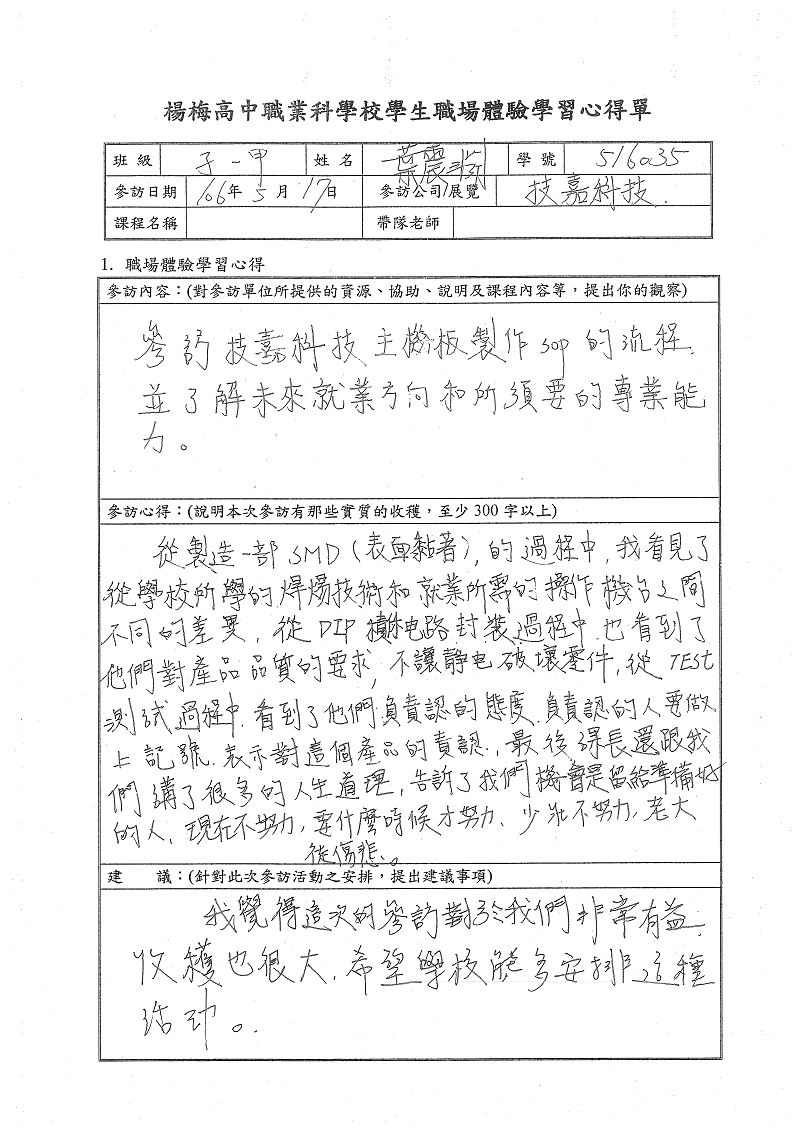 楊梅高中職業科學校學生職場體驗學習心得單
班 級 子一甲 姓 名 葉震 學 號 516035
參訪日期 106年5月17日 參訪公司/展覽 技嘉科技.
課程名稱 帶隊老師
1. 職場體驗學習心得
參訪內容：(對參訪單位所提供的資源、協助、說明及課程內容等，提出你的觀察)
參訪技嘉科技主機板製作sop的流程,
並了解未來就業方向和所須要的專業能
力。
參訪心得：(說明本次參訪有那些實質的收穫，至少300字以上)
從製造一部SMD(表面黏著),的過程中,我看見了
從學校所學的焊焬技術和就業所需的操作機台之間
不同的差異, 從DIP積体电路封裝過程中.也看到了
他們對產品品質的要求,不讓静电破壞零件,從TEST
測試過程中.看到了他們負責認的態度.負責認的人要做
上記號.表示對這個產品的責認.,最後課長還跟我
們講了很多的人生道理,告訴了我們機會是留給準備好
的人、現在不努力,要什麼時候才努力、少壯不努力,老大
徒傷悲。
建 議：(針對此次參訪活動之安排，提出建議事項)
我覺得這次的參訪對於我們非常有益.
收穫也很大.希望學校能多安排這種
活动。